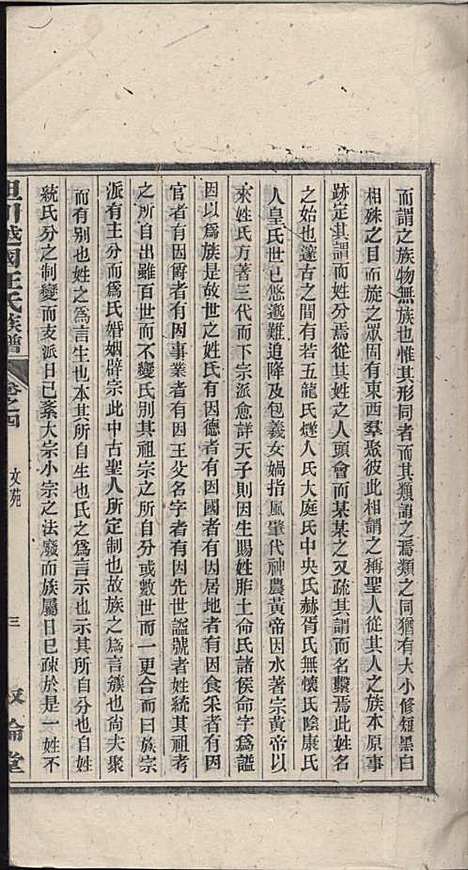 而謂之族物無族也惟其形同者而其類謂之焉類之同猶有大小修短黑白
相殊之目而旋之眾固有東西群聚彼此相謂之稱聖人從其人之族本原事
跡定其謂而姓分焉從其姓之人頭會而某某之又疏其謂而名繫焉此姓名
之始也邃古之間有若五龍氏燧人氏大庭氏中央氏赫胥氏無懷氏陰康氏
人皇氏世已悠邈難追降及包義女媧指風肇代神農黃帝因水著宗黃帝以
來姓氏方著三代而下宗派愈詳天子則因生賜姓胙土命氏諸侯命字為謚
因以為族是故世之姓氏有因德者有因國者有因居地者有因食采者有因
官者有因爵者有因事業者有因王父名字者有因先世謚號者姓統其祖考
之所自出雖百世而不變氏別其祖宗之所自分或數世而一更合而曰族宗
派有主分而為氏婚姻辟宗此中古聖人所定制也故族之為言簇也尚夫聚
而有別也姓之為言生也本其所自生也氏之為言示也示其所自分也自姓
統氏分之制變而支派日已紊大宗小宗之法廢而族屬日已疎於是一姓不
坦川越國汪氏族譜 卷之四 文苑 三 敘倫堂